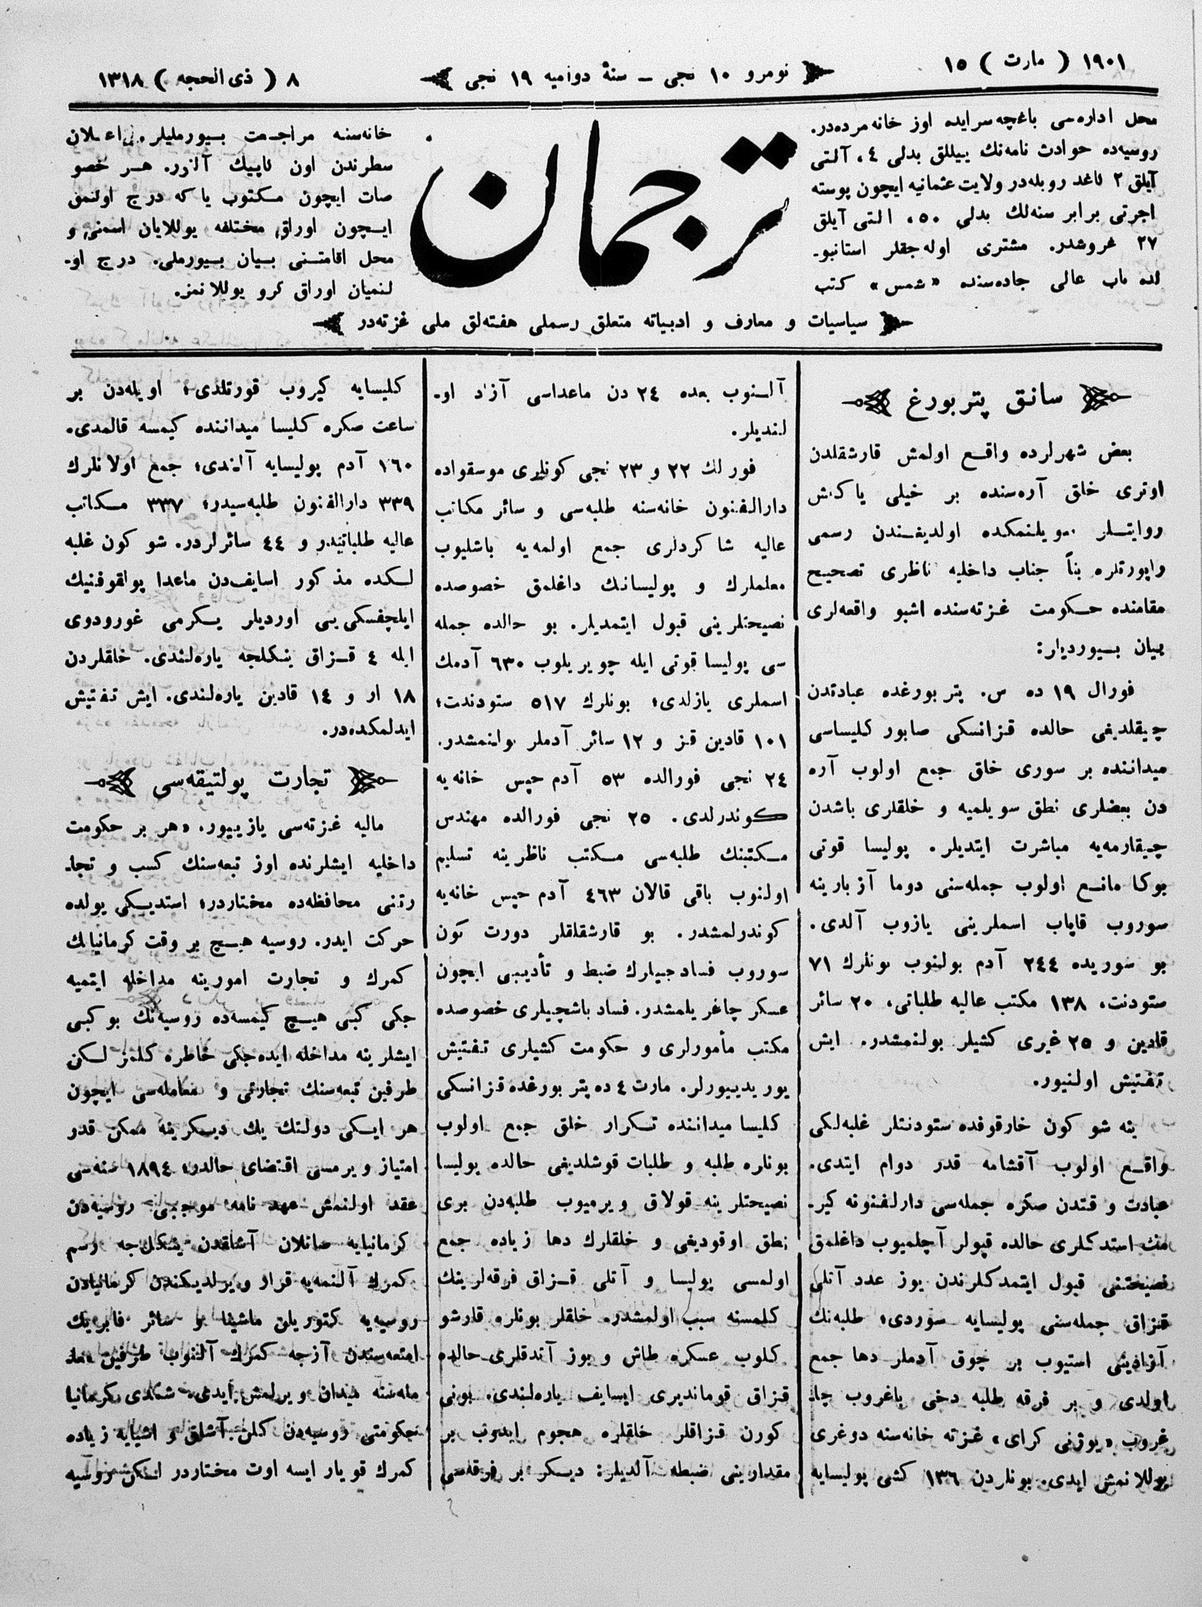 ١٩٠١ ( مارت ) ١٥
نومرو ١٠ نجی ـ سنهٔ دوامیه ١٩ نجی
٨ ( ذی الحجه ) ١٣١٨
محل اداره‌سی باغچه سرایده اوز خانه مزده‌در.
روسیه‌ده حوادث نامه‌نك ییللق بدلی ٤، آلتی
آیلق ٢ كاغد روبله‌در ولایت عثمانیه ایچون پوسته
اجرتی برابر سنه‌لك بدلی ٥٠، التی آیلق
٢٧ غروشدر. مشتری اوله جقلر استانبو۔
لده باب عالی جاده‌سنده «شمس» كتب
ترجمان
خانه‌سنه مراجعت بیورملیلر. اعلان
سطرندن اون كاپیك آلنور. هر خصو
صات ایچون مكتوب یا كه درج اولنمق
ایچون اوراق مختلفه یوللایان اسمنی و
محل اقامتنی بیان بیورملی. درج او۔
لنمیان اوراق كرو یوللانمز.
سیاسیات و معارف و ادبیاته متعلق رسملی هفته‌لق ملی غزته‌در
سانق پتربورغ
بعض شهرلرده واقع اولمش قارشقلدن
اوتری خلق آره‌سنده بر خیلی یاكلش
روایتلر سویلنمكده اولدیغندن رسمی
راپورتلره بناً جناب داخلیه ناظری تصحیح
مقامنده حكومت غزته‌سنده اشبو واقعه‌لری
بیان بیوردیلر:
فورال ١٩ ده س. پتربورغده عبادتدن
چیقلدیغی حالده قزانسكی صابور كلیساسی
میداننده بر سوری خلق جمع اولوب آره
دن بعضلری نطق سویلمیه و خلقلری باشدن
چیقارمه‌یه مباشرت ایتدیلر. پولیسا قوتی
بوكا مانع اولوب جمله‌سنی دوما آزبارینه
سوروب قاپاب اسملرینی یازوب آلدی.
بو سوریده ٢٤٤ آدم بولنوب بونلرك ٧١
ستودنت، ١٣٨ مكتب عالیه طلباتی، ٢٠ سائر
قادین و ٢٥ غیری كشیلر بولنمشدر. ایش
تفتیش اولنیور.
ینه شو كون خارقوفده ستودنتلر غلبه‌لكی
واقع اولوب آقشامه قدر دوام ایتدی.
عبادت و قتدن صكره جمله‌سی دارلفنونه كیر۔
مك استدكلری حالده قپولر آچلمیوب داغلمق
نصیحتنی قبول ایتمدكلرندن یوز عدد آتلی
قزاق جمله‌سنی پولیسایه سوردی؛ طلبه‌نك
آزادینی استیوب بر چوق آدملر دها جمع
اولدی و بر فرقه طلبه دخی باغروب چا۔
غروب «یوژنی كرای» غزته خانه‌سنه دوغری
یوللانمش ایدی. بونلردن ١٣٦ كشی پولیسایه
آلنوب بعده ٢٤ دن ماعداسی آزاد او۔
لندیلر.
فورلك ٢٢ و ٢٣ نجی كونلری موسقواده
دارالفنون خانه‌سنه طلبه‌سی و سائر مكاتب
عالیه شاكردلری جمع اولمه‌یه باشلیوب
معلملرك و پولیسانك داغلمق خصوصده
نصیحتلرینی قبول ایتمدیلر. بو حالده جمله
سی پولیسا قوتی ایله چویریلوب ٦٣٠ آدمك
اسملری یازلدی؛ بونلرك ٥١٧ ستودنت؛
١٠١ قادین قز و ١٢ سائر آدملر بولنمشدر.
٢٤ نجی فورالده ٥٣ آدم حپس خانه‌یه
كوندرلدی. ٢٥ نجی فورالده مهندس
مكتبنك طلبه‌سی مكتب ناظرینه تسلیم
اولنوب باقی قالان ٤٦٣ آدم حپس خانه‌یه
كوندرلمشدر. بو قارشقلقلر دورت كون
سوروب فسادجیلرك ضبط و تأدیبی ایچون
عسكر چاغریلمشدر. فساد باشچیلری خصوصده
مكتب مأمورلری و حكومت كشیلری تفتیش
یوریدییورلر. مارت ٤ ده پتربورغده قزانسكی
كلیسا میداننده تكرار خلق جمع اولوب
بونلره طلبه و طلبات قوشلدیغی حالده پولیسا
نصیحتلرینه قولاق ویرمیوب طلبه‌دن بری
نطق اوقودیغی و خلقلرك دها زیاده جمع
اولمسی پولیسا و آتلی قزاق فرقه‌لرینك
كلمسنه سبب اولمشدر. خلقلر بونلره قارشو
كلوب عسكره طاش و بوز آتدقلری حالده
قزاق قوماندیری ایسایف یاره‌لندی. بونی
كورن قزاقلر خلقلره هجوم ایدوب بر
مقدارینی ضبطه آلدیلر: دیكر بر فرقه‌سی
كلیسایه كیروب قورتلدی؛ اویله‌دن بر
ساعت صكره كلیسا میداننده كیمسه قالمدی.
٧٦٠ آدم پولیسایه آلندی؛ جمع اولانلرك
٣٣٩ دارالفنون طلبه‌سیدر؛ ٣٣٧ مكاتب
عالیه طلباتیدر و ٤٤ سائرلردر. شو كون غلبه
لكده مذكور اسایف‌دن ماعدا پولقوقنیك
ایلچفسكی‌یی اوردیلر یكرمی غورودوی
ایله ٤ قزاق ینكلجه یاره‌لندی. خلقلردن
١٨ ار و ١٤ قادین یاره‌لندی. ایش تفتیش
ایدلمكده‌در.
تجارت پولتیقه‌سی
مالیه غزته‌سی یازییور. «هر بر حكومت
داخلیه ایشلرنده اوز تبعه‌سنك كسب و تجا۔
رتنی محافظه‌ده مختاردر؛ استدیكی یولده
حركت ایدر. روسیه هیچ بر وقت كرمانیانك
كمرك و تجارت امورینه مداخله ایتمیه
جكی كبی هیچ كیمسه‌ده روسیه‌نك بو كبی
ایشلرینه مداخله ایده‌جكی خاطره كلمز لكن
طرفین تبعه‌سنك تجارتی و معامله‌سی ایچون
هر ایكی دولتك یك دیكرینه ممكن قدر
امتیاز ویرمسی اقتضای حالدر؛ ١٨٩٤ سنه‌سی
عقد اولنمش عهد نامه موجبی روسیه‌دن
كرمانیایه صاتلان آشلقدن یتكلجه رسم
كمرك آلنمه‌یه قرار ویرلدیكندن كرمانیادن
روسیه‌یه كتوریلن ماشینا و سائر فابریك
امتعه‌سندن آزجه كمرك آلنوب طرفین معا۔
مله‌سنه میدان ویرلمش ایدی. شمدی كرمانیا
حكومتی روسیه‌دن كلن آشلق و اشیایه زیاده
كمرك قویار ایسه اوت مختاردر لكن روسیه